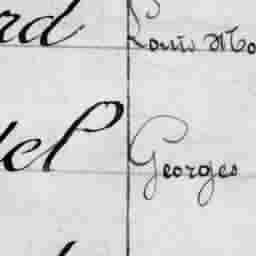 rd Louis Mo
el Georges